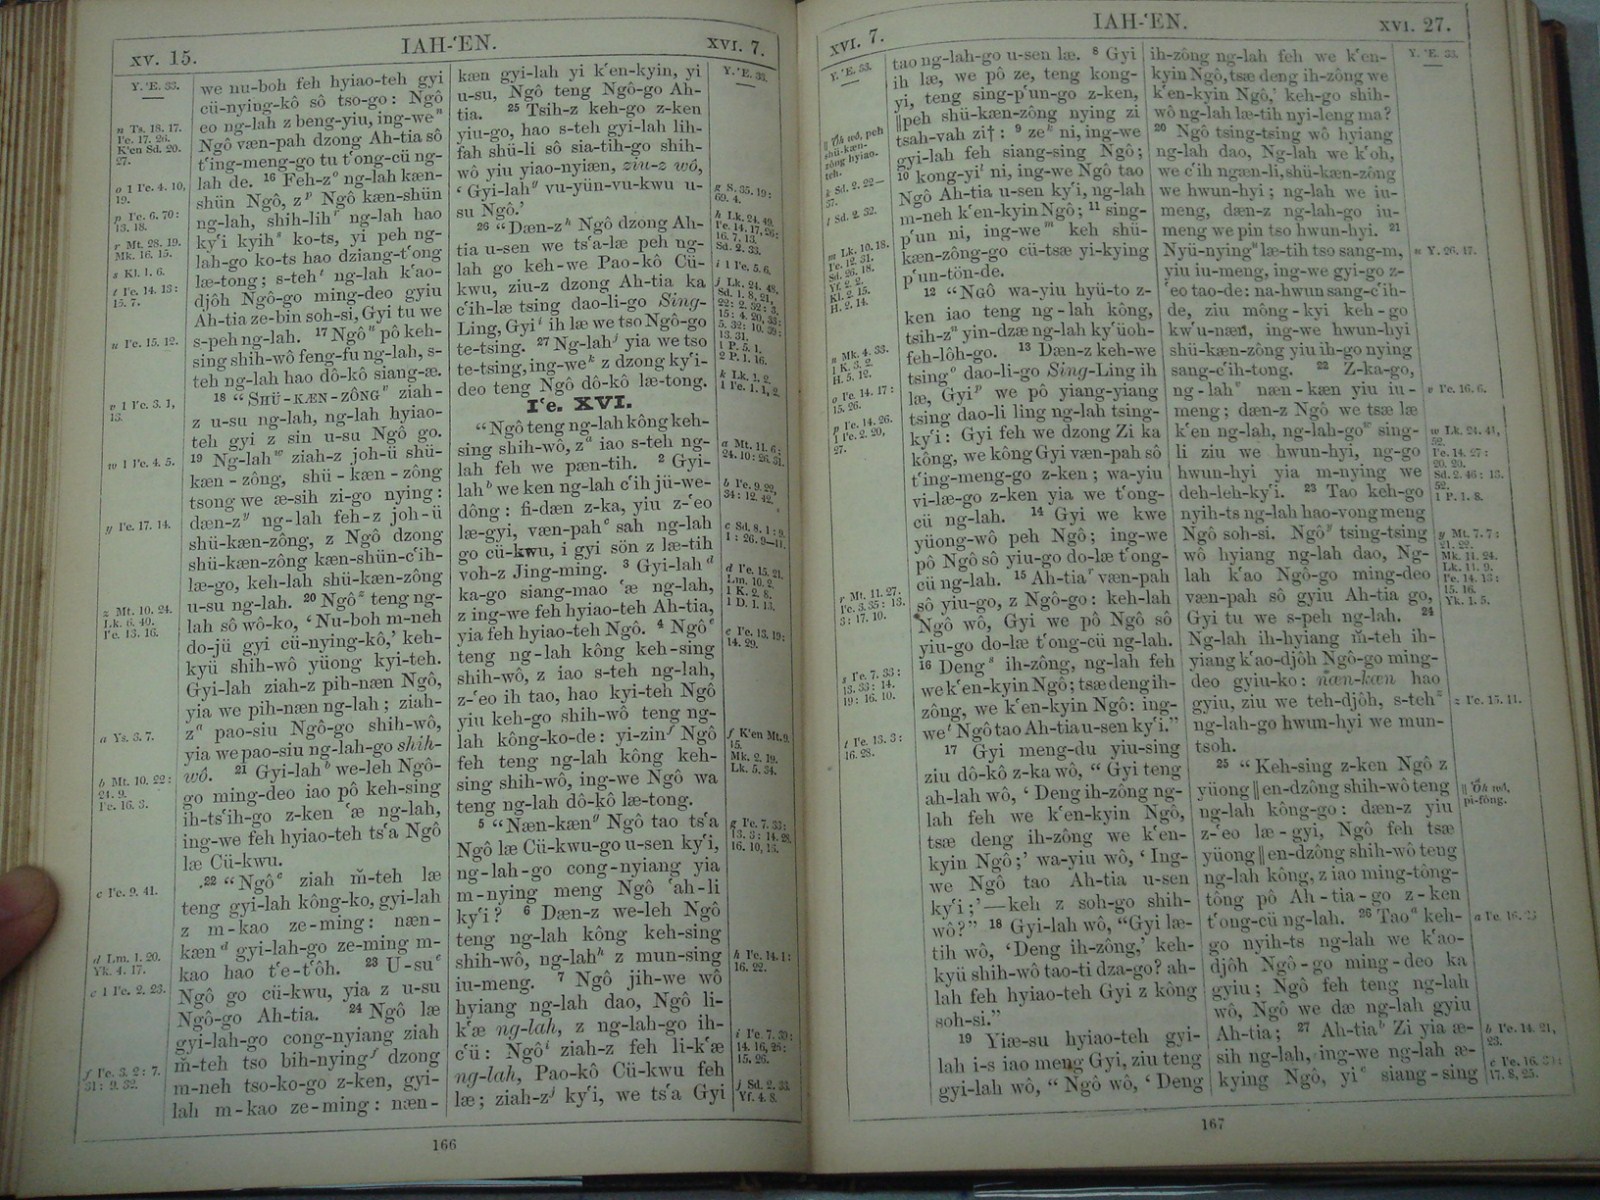 XV. 15.
IAH-ʻEN.
XVI. 7.
Y. ʻE. 33.
n Ts. 18. 17.
o 1 Iʻe. 4. 10,
19.
p Iʻe. 6. 70:
13. 18.
r Mt. 28. 19.
Mk. 16. 15.
s Kl. 1. 6.
t Iʻe. 14. 13:
15. 7.
u Iʻe. 15. 12.
v 1 Iʻe. 3. 1,
13.
w 1 Iʻe. 4. 5.
y Iʻe. 17. 14.
z Mt. 10. 24.
Lk. 6. 40.
Iʻe. 13. 16.
a Ys. 3. 7.
b Mt. 10. 22:
24. 9.
Iʻe. 16. 3.
c Iʻe. 9. 41.
d Lm. 1. 20.
Yk. 4. 17.
e 1 Iʻe. 2. 23.
f Iʻe. 3. 2: 7.
31: 9. 32.
we nu-boh feh hyiao-teh gyi
cü-nying-kô sô tso-go: Ngô
eo ng-lah z beng-yiu, ing-weⁿ
Ngô væn-pah dzong Ah-tia sô
tʻing-meng-go tu tʻong-cü ng-
lah de. 16 Feh-zᵒ ng-lah kæn-
shün Ngô, zᵖ Ngô kæn-shün
ng-lah, shih-lihʳ ng-lah hao
kyʻi kyihˢ ko-ts, yi peh ng-
lah-go ko-ts hao dziang-tʻong
læ-tong; s-tehᵗ ng-lah kʻao-
djôh Ngô-go ming-deo gyiu
Ah-tia ze-bin soh-si, Gyi tu we
s-peh ng-lah. 17 Ngôᵘ pô keh-
sing shih-wô feng-fu ng-lah, s-
teh ng-lah hao dô-kô siang-æ.
18 “SHÜ-KÆN-ZÔNGᵛ ziah-
z u-su ng-lah, ng-lah hyiao-
teh gyi z sin u-su Ngô go.
19 Ng-lahʷ ziah-z joh-ü shü-
kæn-zông, shü-kæn-zông
tsong we æ-sih zi-go nying:
dæn-zʸ ng-lah feh-z joh-ü
shü-kæn-zông, z Ngô dzong
shü-kæn-zông kæn-shün-cʻih-
læ-go, keh-lah shü-kæn-zông
u-su ng-lah. 20 Ngôᶻ teng ng-
lah sô wô-ko, ‘Nu-boh m-neh
do-jü gyi cü-nying-kô,’ keh-
kyü shih-wô yüong kyi-teh.
Gyi-lah ziah-z pih-næn Ngô,
yia we pih-næn ng-lah; ziah-
zᵃ pao-siu Ngô-go shih-wô,
yia we pao-siu ng-lah-go shih-
wô. 21 Gyi-lahᵇ we-leh Ngô-
go ming-deo iao pô keh-sing
ih-tsʻih-go z-ken ʻæ ng-lah,
ing-we feh hyiao-teh tsʻa Ngô
læ Cü-kwu.
22 “Ngôᶜ ziah m̆-teh læ
teng gyi-lah kông-ko, gyi-lah
z m-kao ze-ming: næn-
kænᵈ gyi-lah-go ze-ming m-
kao hao tʻe-tʻôh. 23 U-suᵉ
Ngô go cü-kwu, yia z u-su
Ngô-go Ah-tia. 24 Ngô læ
gyi-lah-go cong-nyiang ziah
m̆-teh tso bih-nyingᶠ dzong
m-neh tso-ko-go z-ken, gyi-
lah m-kao ze-ming: næn-
kæn gyi-lah yi kʻen-kyin, yi
u-su, Ngô teng Ngô-go Ah-
tia. 25 Tsih-z keh-go z-ken
yiu-go, hao s-teh gyi-lah lih-
fah shü-li sô sia-tih-go shih-
wô yiu yiao-nyiæn, ziu-z wô,
‘Gyi-lahᵍ vu-yün-vu-kwu u-
su Ngô.’
26 “Dæn-zʰ Ngô dzong Ah-
tia u-sen we tsʻa-læ peh ng-
lah go keh-we Pao-kô Cü-
kwu, ziu-z dzong Ah-tia ka
cʻih-læ tsing dao-li-go Sing-
Ling, Gyiⁱ ih læ we tso Ngô-go
te-tsing. 27 Ng-lahʲ yia we tso
te-tsing, ing-weᵏ z dzong kyʻi-
deo teng Ngô dô-kô læ-tong.
Iʻe. XVI.
“Ngô teng ng-lah kông keh-
sing shih-wô, zᵃ iao s-teh ng-
lah feh we pæn-tih. 2 Gyi-
lahᵇ we ken ng-lah cʻih jü-we-
dông: fi-dæn z-ka, yiu z-ʻeo
læ-gyi, væn-pahᶜ sah ng-lah
go cü-kwu, i gyi sön z læ-tih
voh-z Jing-ming. 3 Gyi-lahᵈ
ka-go siang-mao ʻæ ng-lah,
z ing-we feh hyiao-teh Ah-tia,
yia feh hyiao-teh Ngô. 4 Ngôᵉ
teng ng-lah kông keh-sing
shih-wô, z iao s-teh ng-lah,
z-ʻeo ih tao, hao kyi-teh Ngô
yiu keh-go shih-wô teng ng-
lah kông-ko-de: yi-zinᶠ Ngô
feh teng ng-lah kông keh-
sing shih-wô, ing-we Ngô wa
teng ng-lah dô-kô læ-tong.
5 “Næn-kænᵍ Ngô tao tsʻa
Ngô læ Cü-kwu-go u-sen kyʻi,
ng-lah-go cong-nyiang yia
m-nying meng Ngô ʻah-li
kyʻi? 6 Dæn-z we-leh Ngô
teng ng-lah kông keh-sing
shih-wô, ng-lahʰ z mun-sing
iu-meng. 7 Ngô jih-we wô
hyiang ng-lah dao, Ngô li-
kʻæ ng-lah, z ng-lah-go ih-
cʻü: Ngôⁱ ziah-z feh li-kʻæ
ng-lah, Pao-kô Cü-kwu feh
læ; ziah-zʲ kyʻi, we tsʻa Gyi
Y. ʻE. 33.
g S. 35. 19:
69. 4.
h Lk. 24. 49.
Iʻe. 14. 17, 26:
16. 7, 13.
Sd. 2. 33.
i 1 Iʻe. 5. 6.
j Lk. 24. 48.
Sd. 1. 8, 21,
22: 2. 32: 3.
15: 4. 20, 33:
5. 32: 10. 39:
13. 31.
1 P. 5. 1.
2 P. 1. 16.
k Lk. 1. 2.
1 Iʻe. 1. 1, 2.
a Mt. 11. 6:
24. 10: 26. 31.
b Iʻe. 9. 22,
34: 12. 42.
c Sd. 8. 1: 9.
1: 26. 9—11.
d Iʻe. 15. 21.
Lm. 10. 2.
1 K. 2. 8.
1 D. 1. 13.
e Iʻe. 13. 19:
14. 29.
f Kʻen Mt. 9.
15.
Mk. 2. 19.
Lk. 5. 34.
g Iʻe. 7. 33:
13. 3: 14. 28.
16. 10, 16.
h Iʻe. 14. 1:
16. 22.
i Iʻe. 7. 39:
14. 16, 26:
15. 26.
j Sd. 2. 33.
Yf. 4. 8.
166
XVI. 7.
IAH-ʻEN.
XVI. 27.
Y. ʻE. 33.
k Sd. 2. 22—
37.
l Sd. 2. 32.
m Lk. 10. 18.
Iʻe. 12. 31.
Sd. 26. 18.
Yf. 2. 2.
Kl. 2. 15.
H. 2. 14.
n Mk. 4. 33.
1 K. 3. 2.
H. 5. 12.
o Iʻe. 14. 17:
15. 26.
p Iʻe. 14. 26.
1 Iʻe. 2. 20,
27.
r Mt. 11. 27.
Iʻe. 3. 35: 13.
3: 17. 10.
s Iʻe. 7. 33:
13. 33: 14.
19: 16. 10.
t Iʻe. 13. 3:
16. 28.
tao ng-lah-go u-sen læ. 8 Gyi
ih læ, we pô ze, teng kong-
yi, teng sing-pʻun-go z-ken,
‖peh shü-kæn-zông nying zi
tsah-vah zi†: 9 zeᵏ ni, ing-we
gyi-lah feh siang-sing Ngô;
10 kong-yiˡ ni, ing-we Ngô tao
Ngô Ah-tia u-sen kyʻi, ng-lah
m-neh kʻen-kyin Ngô; 11 sing-
pʻun ni, ing-weᵐ keh shü-
kæn-zông-go cü-tsæ yi-kying
pʻun-tön-de.
12 “NGÔ wa-yiu hyü-to z-
ken iao teng ng-lah kông,
tsih-zⁿ yin-dzæ ng-lah kyʻüoh-
feh-lôh-go. 13 Dæn-z keh-we
tsingᵒ dao-li-go Sing-Ling ih
læ, Gyiᵖ we pô yiang-yiang
tsing dao-li ling ng-lah tsing-
kyʻi: Gyi feh we dzong Zi ka
kông, we kông Gyi væn-pah sô
tʻing-meng-go z-ken; wa-yiu
vi-læ-go z-ken yia we tʻong-
cü ng-lah. 14 Gyi we kwe
yüong-wô peh Ngô; ing-we
pô Ngô sô yiu-go do-læ tʻong-
cü ng-lah. 15 Ah-tiaʳ væn-pah
sô yiu-go, z Ngô-go: keh-lah
Ngô wô, Gyi we pô Ngô sô
yiu-go do-læ tʻong-cü ng-lah.
16 Dengˢ ih-zông, ng-lah feh
we kʻen-kyin Ngô; tsæ deng ih-
zông, we kʻen-kyin Ngô: ing-
weᵗ Ngô tao Ah-tia u-sen kyʻi.”
17 Gyi meng-du yiu-sing
ziu dô-kô z-ka wô, “Gyi teng
ah-lah wô, ‘Deng ih-zông ng-
lah feh we kʻen-kyin Ngô,
tsæ deng ih-zông we kʻen-
kyin Ngô;’ wa-yiu wô, ‘Ing-
we Ngô tao Ah-tia u-sen
kyʻi;’—keh z soh-go shih-
wô?” 18 Gyi-lah wô, “Gyi læ-
tih wô, ‘Deng ih-zông,’ keh-
kyü shih-wô tao-ti dza-go? ah-
lah feh hyiao-teh Gyi z kông
soh-si.”
19 Yiæ-su hyiao-teh gyi-
lah i-s iao meng Gyi, ziu teng
gyi-lah wô, “Ngô wô, ‘Deng
ih-zông ng-lah feh we kʻen-
kyin Ngô, tsæ deng ih-zông we
kʻen-kyin Ngô,’ keh-go shih-
wô ng-lah læ-tih nyi-leng ma?
20 Ngô tsing-tsing wô hyiang
ng-lah dao, Ng-lah we kʻoh,
we cʻih ngæn-li, shü-kæn-zông
we hwun-hyi; ng-lah we iu-
meng, dæn-z ng-lah-go iu-
meng we pin tso hwun-hyi. 21
Nyü-nyingᵘ læ-tih tso sang-m,
yiu iu-meng, ing-we gyi-go z-
ʻeo tao-de: na-hwun sang-cʻih-
de, ziu mông-kyi keh-go
kwʻu-næn, ing-we hwun-hyi
shü-kæn-zông yiu ih-go nying
sang-cʻih-tong. 22 Z-ka-go,
ng-lahᵛ næn-kæn yiu iu-
meng; dæn-z Ngô we tsæ læ
kʻen ng-lah, ng-lah-goʷ sing-
li ziu we hwun-hyi, ng-go
hwun-hyi yia m-nying we
deh-leh-kyʻi. 23 Tao keh-go
nyih-ts ng-lah hao-vong meng
Ngô soh-si. Ngôʸ tsing-tsing
wô hyiang ng-lah dao, Ng-
lah kʻao Ngô-go ming-deo
væn-pah sô gyiu Ah-tia go,
Gyi tu we s-peh ng-lah. 24
Ng-lah ih-hyiang m̆-teh ih-
yiang kʻao-djôh Ngô-go ming-
deo gyiu-ko: næn-kæn hao
gyiu, ziu we teh-djôh, s-tehᶻ
ng-lah-go hwun-hyi we mun-
tsoh.
25 “Keh-sing z-ken Ngô z
yüong ‖en-dzông shih-wô teng
ng-lah kông-go: dæn-z yiu
z-ʻeo læ-gyi, Ngô feh tsæ
yüong ‖en-dzông shih-wô teng
ng-lah kông, z iao ming-tông-
tông pô Ah-tia-go z-ken
tʻong-cü ng-lah. 26 Taoᵃ keh-
go nyih-ts ng-lah we kʻao-
djôh Ngô-go ming-deo ka
gyiu; Ngô feh teng ng-lah
wô, Ngô we dæ ng-lah gyiu
Ah-tia; 27 Ah-tiaᵇ Zi yia æ-
sih ng-lah, ing-we ng-lah æ-
kying Ngô, yiᶜ siang-sing
Y. ʻE. 33.
u Y. 26. 17.
v Iʻe. 16. 6.
w Lk. 24. 41,
52.
Iʻe. 14. 27:
20. 20.
Sd. 2. 46: 13.
52.
1 P. 1. 8.
y Mt. 7. 7:
21. 22.
Mk. 11. 24.
Lk. 11. 9.
Iʻe. 14. 13:
15. 16.
Yk. 1. 5.
z Iʻe. 15. 11.
pi-fông.
a Iʻe. 16. 23
b Iʻe. 14. 21,
23.
c Iʻe. 16. 30:
17. 8, 25.
167